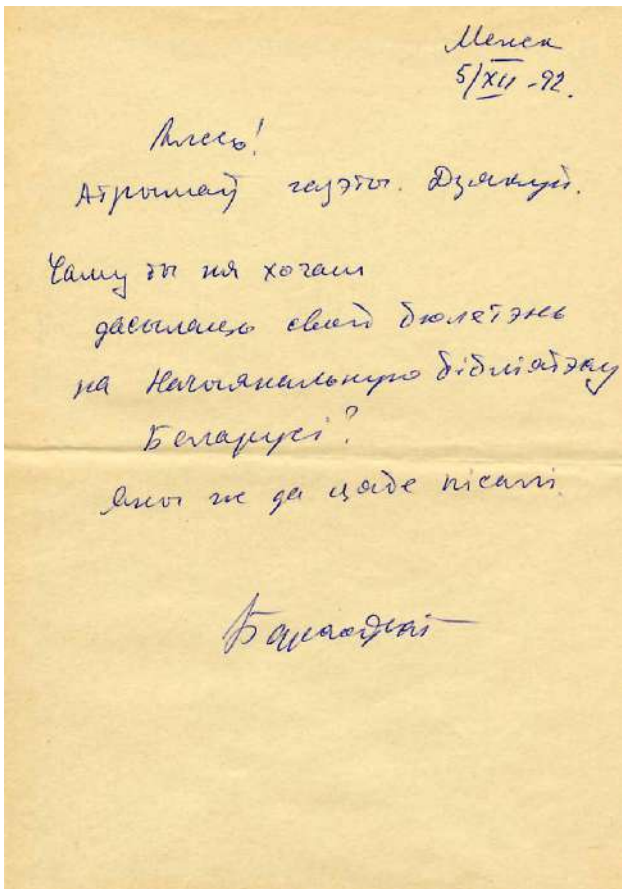 Менск
5/XII -92.
Алесь!
Атрымаў газэты. Дзякуй.
Чаму ты ня хочаш
дасылаць свой бюлетэнь
на Нацыянальную бібліятэку
Беларусі?
Яны ж да цябе пісалі.